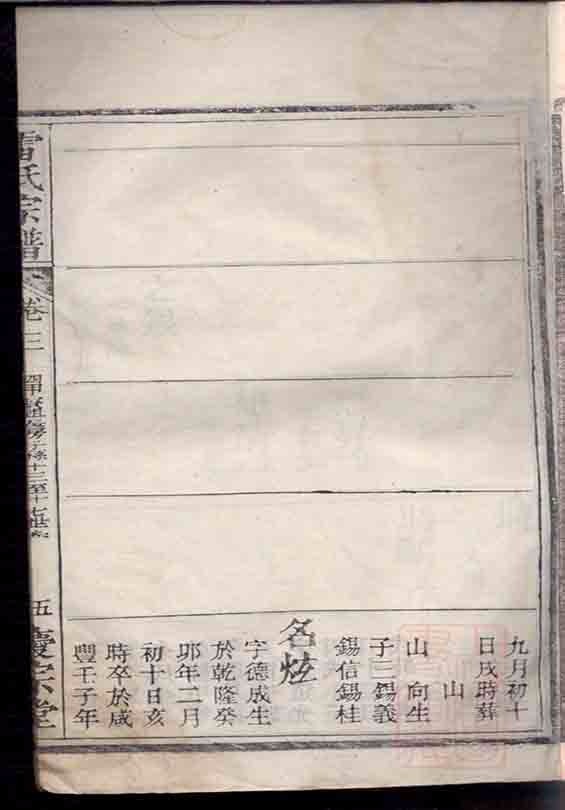 九月初十
日戌時葬
山
山 向生
子三錫義
錫信錫桂
名炫
字德成生
於乾隆癸
卯年二月
初十日亥
時卒於咸
豐壬子年
雷氏宗譜
卷三
五
慶宗堂